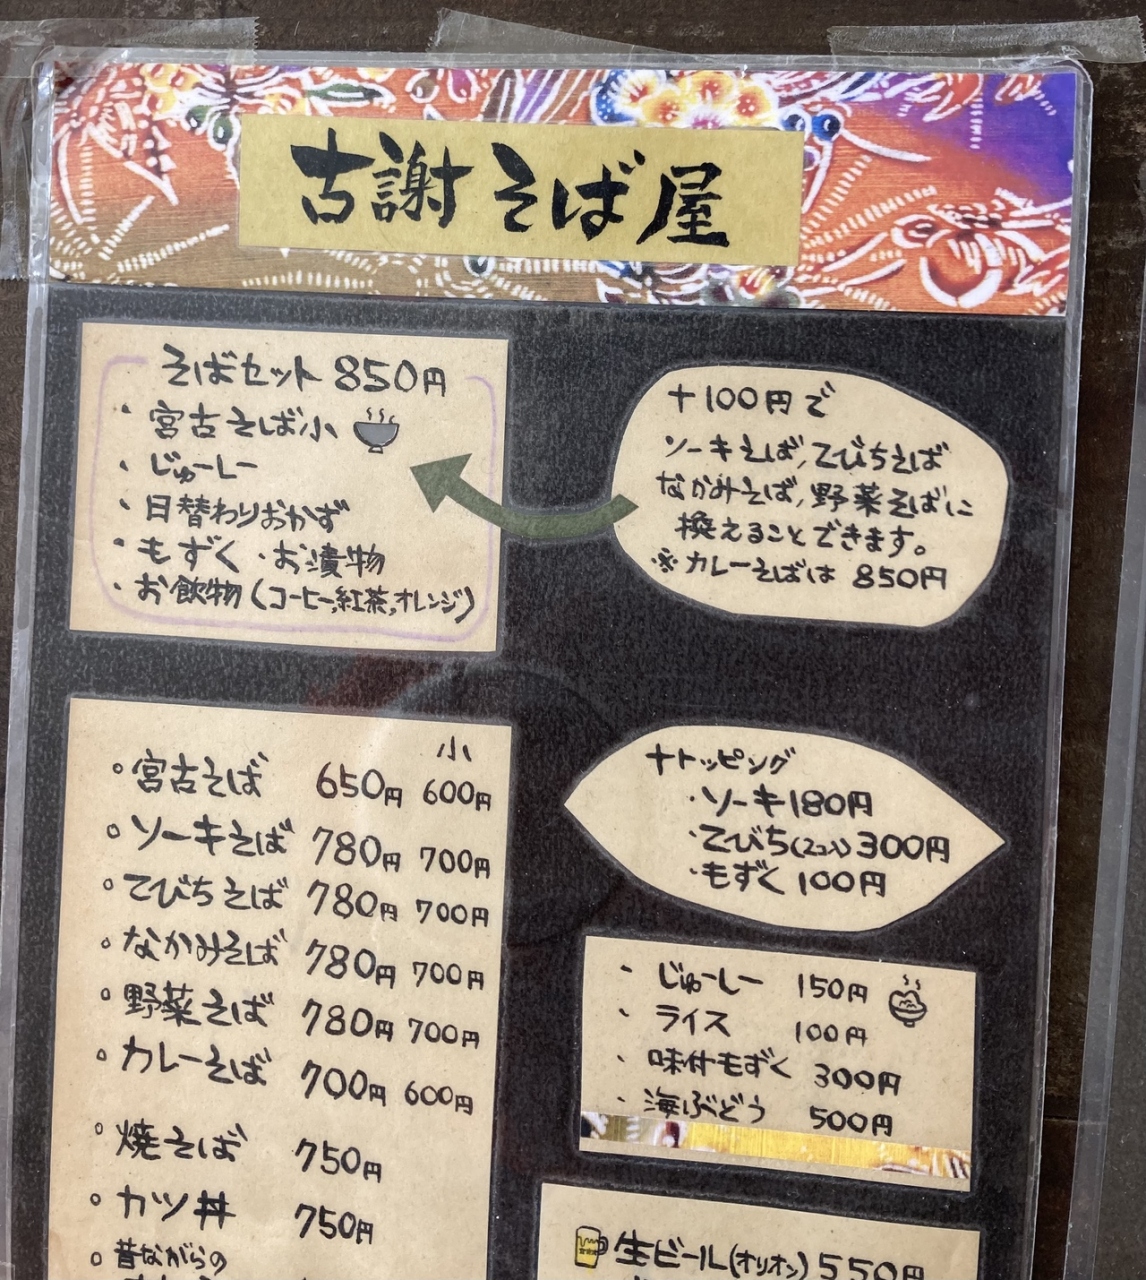 古謝そば屋
そばセット 850円
・宮古そば小
・じゅーしー
・日替わりおかず
・もずく ・お漬物
・お飲物(コーヒー,紅茶,オレンジ)
+100円で
ソーキそば,てびちそば
なかみそば,野菜そばに
換えることできます。
※カレーそばは 850円
小
。宮古そば 650円 600円
。ソーキそば 780円 700円
。てびちそば 780円 700円
。なかみそば 780円 700円
。野菜そば 780円 700円
。カレーそば 700円 600円
。焼そば 750円
。カツ丼 750円
。昔ながらの
+トッピング
・ソーキ180円
・てびち(2コ入)300円
・もずく 100円
・じゅーしー 150円
・ライス 100円
・味付もずく 300円
・海ぶどう 500円
生ビール(オリオン)550円